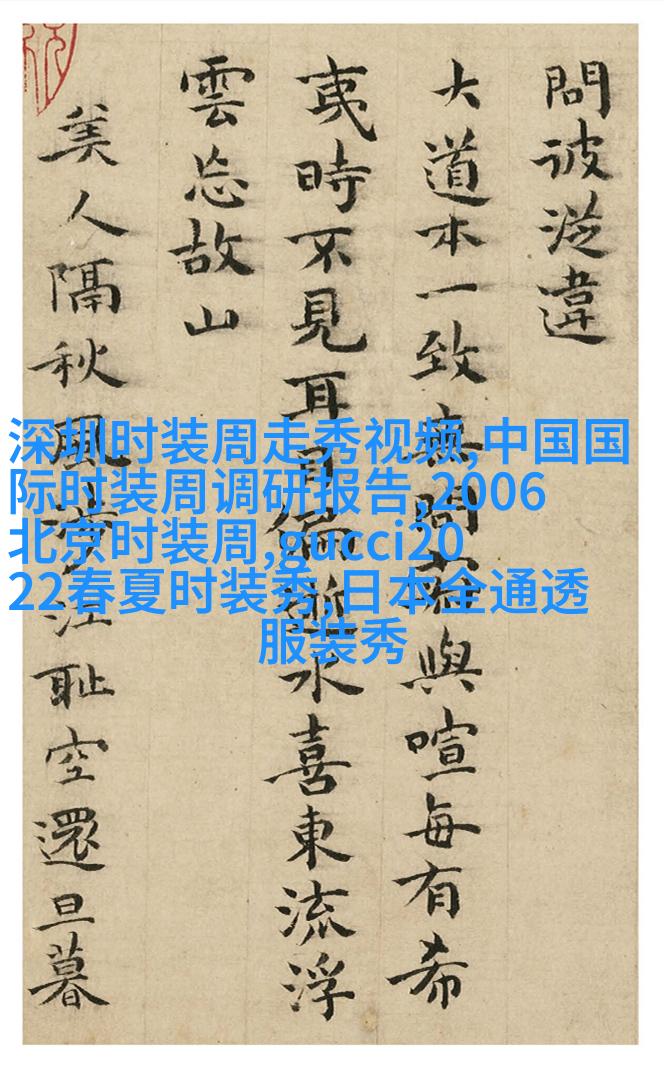 問彼從違
大道本一致無問與喧每有希
夷時不見耳水喜東流浮
雲忘故山
美人隔秋風涉江恥空還旦暮
深圳时装周走秀视频,中国国
际时装周调研报告,2006
北京时装周,gucci20
22春夏时装秀,日本全通透
服装秀